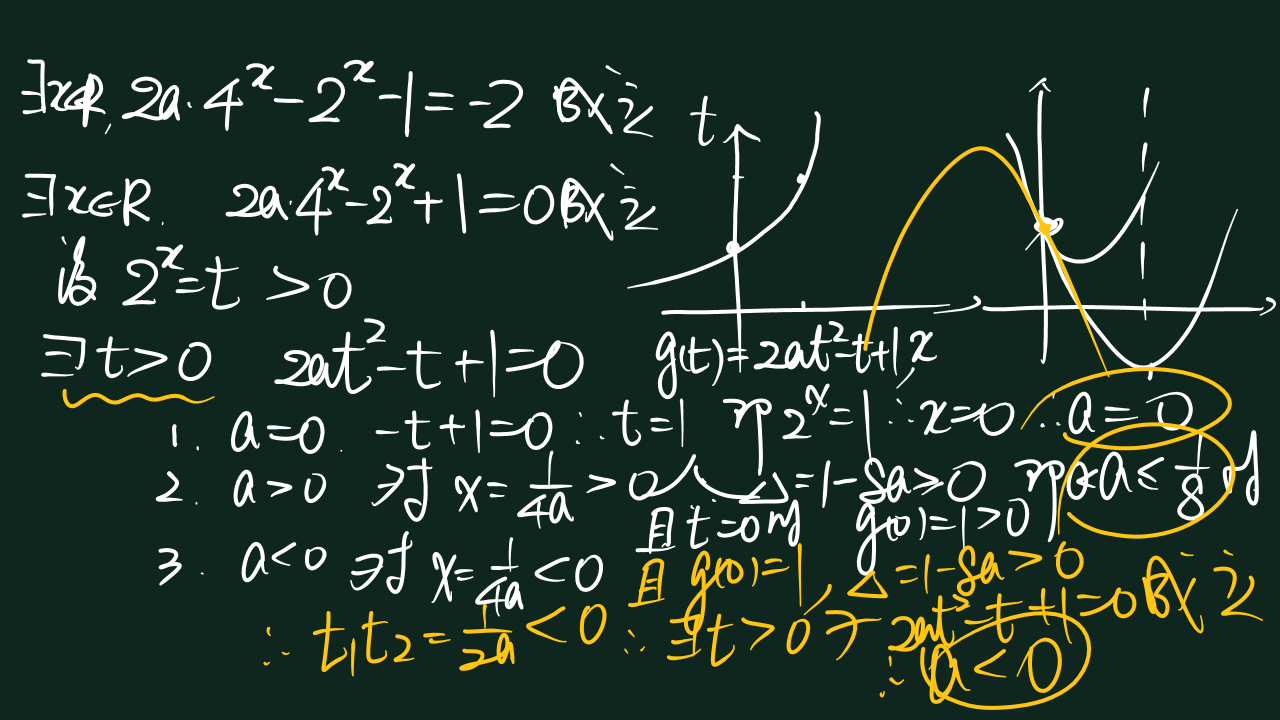 ∃x∈R, 2a·4^x-2^x-1=-2 成立
∃x∈R. 2a·4^x-2^x+1=0成立
设 2^x=t>0
∃t>0 2at²-t+1=0
t
g(t)=2at²-t+1, x
1. a=0. -t+1=0 ∴t=1 即2^x=1 ∴x=0 ∴a=0
2. a>0 对 x=1/4a>0 △=1-8a≥0 即0<a≤1/8时
且t=0时 g(0)=1>0
3. a<0 对 x=1/4a<0 且 g(0)=1, △=1-8a>0
∴ t₁t₂=1/2a<0 ∴∃t>0 于 2at²-t+1=0成立
∴ a<0